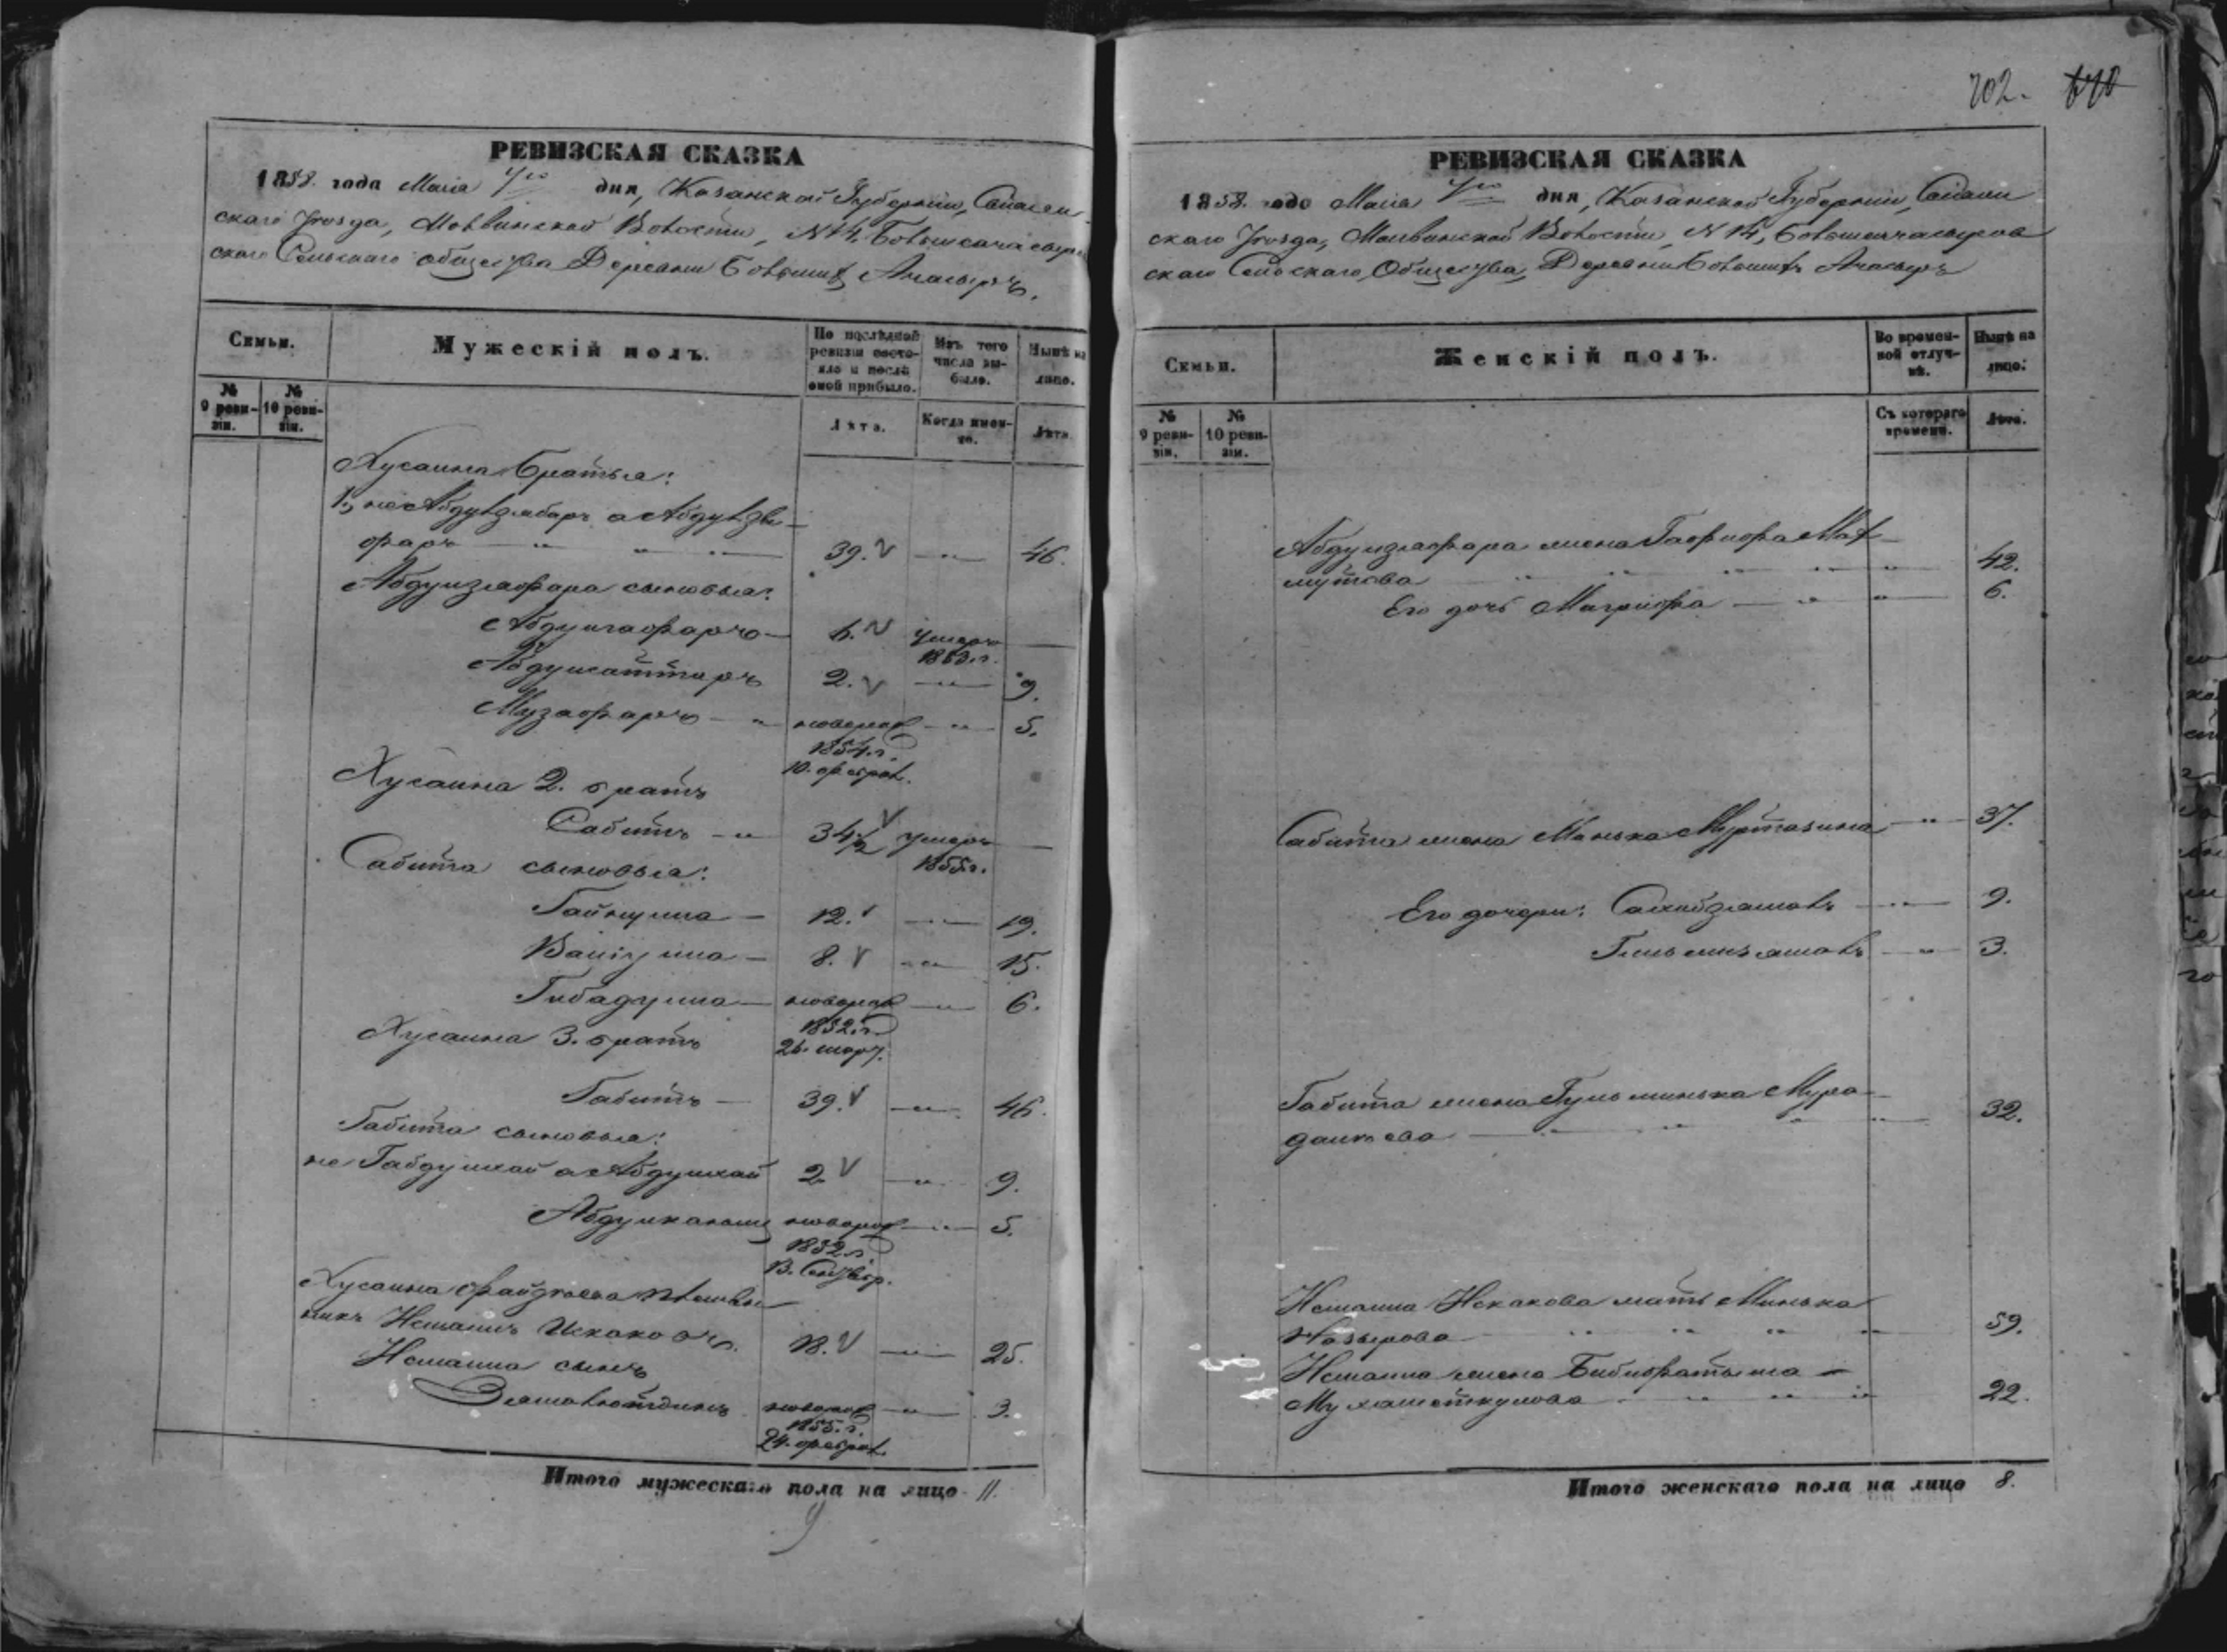 702. 670
РЕВИЗСКАЯ СКАЗКА
1858. года Маія 4го дня, Казанской Губерніи, Спасс-
скаго Уѣзда, Волости, № 14,
скаго Сельскаго общества Деревни Большихъ Ачасыръ.
Семьи.
Мужескій полъ.
По послѣдней ревизіи состо-
яло и послѣ оной прибыло.
Изъ того числа вы-
было.
Нынѣ на лицо.
№ 9 реви-
зіи.
№ 10 реви-
зіи.
Лѣта.
Когда имен-
но.
Лѣта.
Хусаина братья:
1, не Абдулзябаръ а Абдулзя-
фаръ 39. 46.
Абдулзяфара сыновья:
Абдулгафаръ 6. умеръ
1853. г.
Абдулсаттаръ 2. 9.
Музафаръ новорож 5.
1854. г.
10. феврал.
Хусаина 2. братъ
Сабитъ 34 1/2 умеръ
1855 г.
Сабита сыновья:
Гайнулла 12. 19.
Валіулла 8. 15.
Гибадулла новорож 6.
1852. г.
26. март.
Хусаина 3. братъ
Габитъ 39. 46.
Габита сыновья:
не Габдулхай а Абдулхай 2. 9.
новорож 5.
1852 г.
13. Сентябр.
Хусаина Файзуллова племян-
никъ Исмаилъ Искаковъ. 18. 25.
Исмаила сынъ
Зямалютдинъ новорож 3.
1855. г.
24. феврал.
Итого мужескаго пола на лицо 11.
9
РЕВИЗСКАЯ СКАЗКА
1858. года Маія 4го дня, Казанской Губерніи, Спасс-
скаго Уѣзда, Волости, № 14,
скаго Сельскаго Общества, Деревни Большихъ Ачасыръ
Семьи.
Женскій полъ.
Во времен-
ной отлуч-
кѣ.
Нынѣ на лицо.
№ 9 реви-
зіи.
№ 10 реви-
зіи.
Съ котораго времени.
Лѣта.
Абдулзяфара жена Гафифа Мах-
мутова 42.
Его дочь Магрифа 6.
Сабита жена Манька Муртазина 37.
Его дочери: Сахибзямалъ 9.
3.
Габита жена Гульминька Мура-
32.
Исмаила Искакова мать Минька
Назырова 59.
Исмаила жена Бибифатыма
Мухаметкулова 22.
Итого женскаго пола на лицо 8.